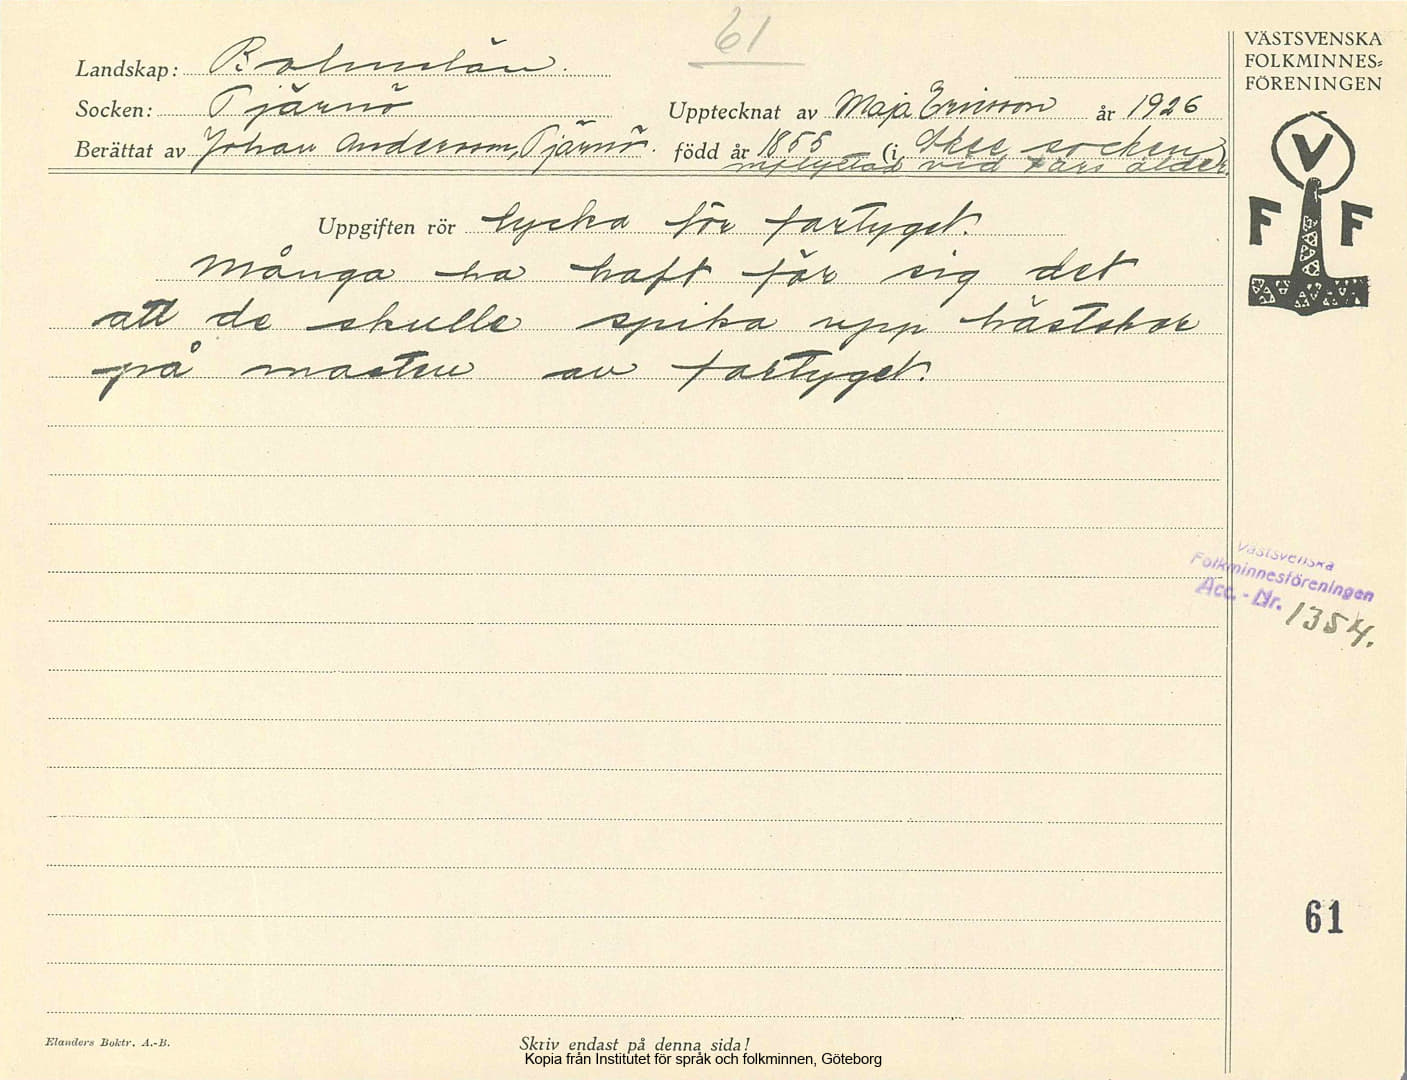 61
VÄSTSVENSKA
FOLKMINNES=
FÖRENINGEN
Landskap: Bohuslän.
Socken: Tjärnö
Upptecknat av Maja Ericsson år 1926
Berättat av Johan Andersson, Tjärnö. född år 1855 (i Skee socken
inflyttad vid 7 års ålder.
V
F F
Uppgiften rör lycka för fartyget.
Många ha haft för sig det
att de skulle spika upp hästskor
på masten av fartyget.
Västsvenska
Folkminnesföreningen
Acc. - Nr. 1354.
61
Elanders Boktr. A.-B.
Skriv endast på denna sida!
Kopia från Institutet för språk och folkminnen, Göteborg